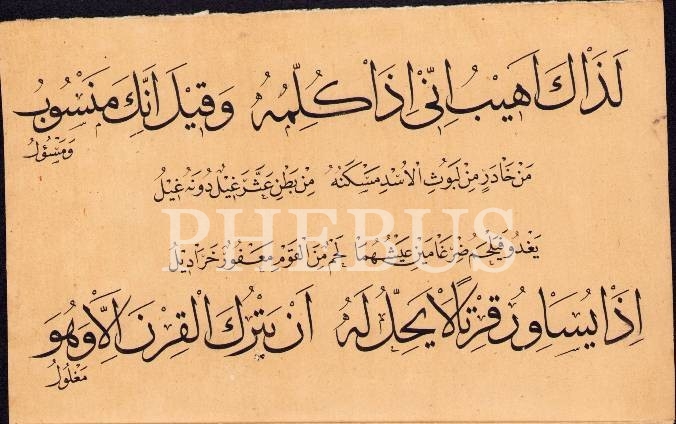 لَذَاكَ اَهْيَبُ اِنّي اِذَا كُلِّمُهُ وَقِيْلَ اَنَّكَ مَنْسُوبُ
وَمَسْؤُلُ
مِنْ خَادِرٍ مِنْ لُيُوثِ الْاُسْدِ مَسْكَنُهُ مِنْ بَطْنِ عَثَّرَ غِيْلٌ دُونَهُ غِيْلُ
PHEBUS
يَغْدُو فَيُلْحِمُ ضِرْغَامَيْنِ عَيْشُهُمَا لَحْمٌ مِنَ الْقَوْمِ مَعْفُورٌ خَرَادِيْلُ
اِذَا يُسَاوِرُ قِرْنًا لَا يَحِلُّ لَهُ اَنْ يَتْرُكَ الْقِرْنَ اِلَّا وَهُوَ
مَغْلُولُ